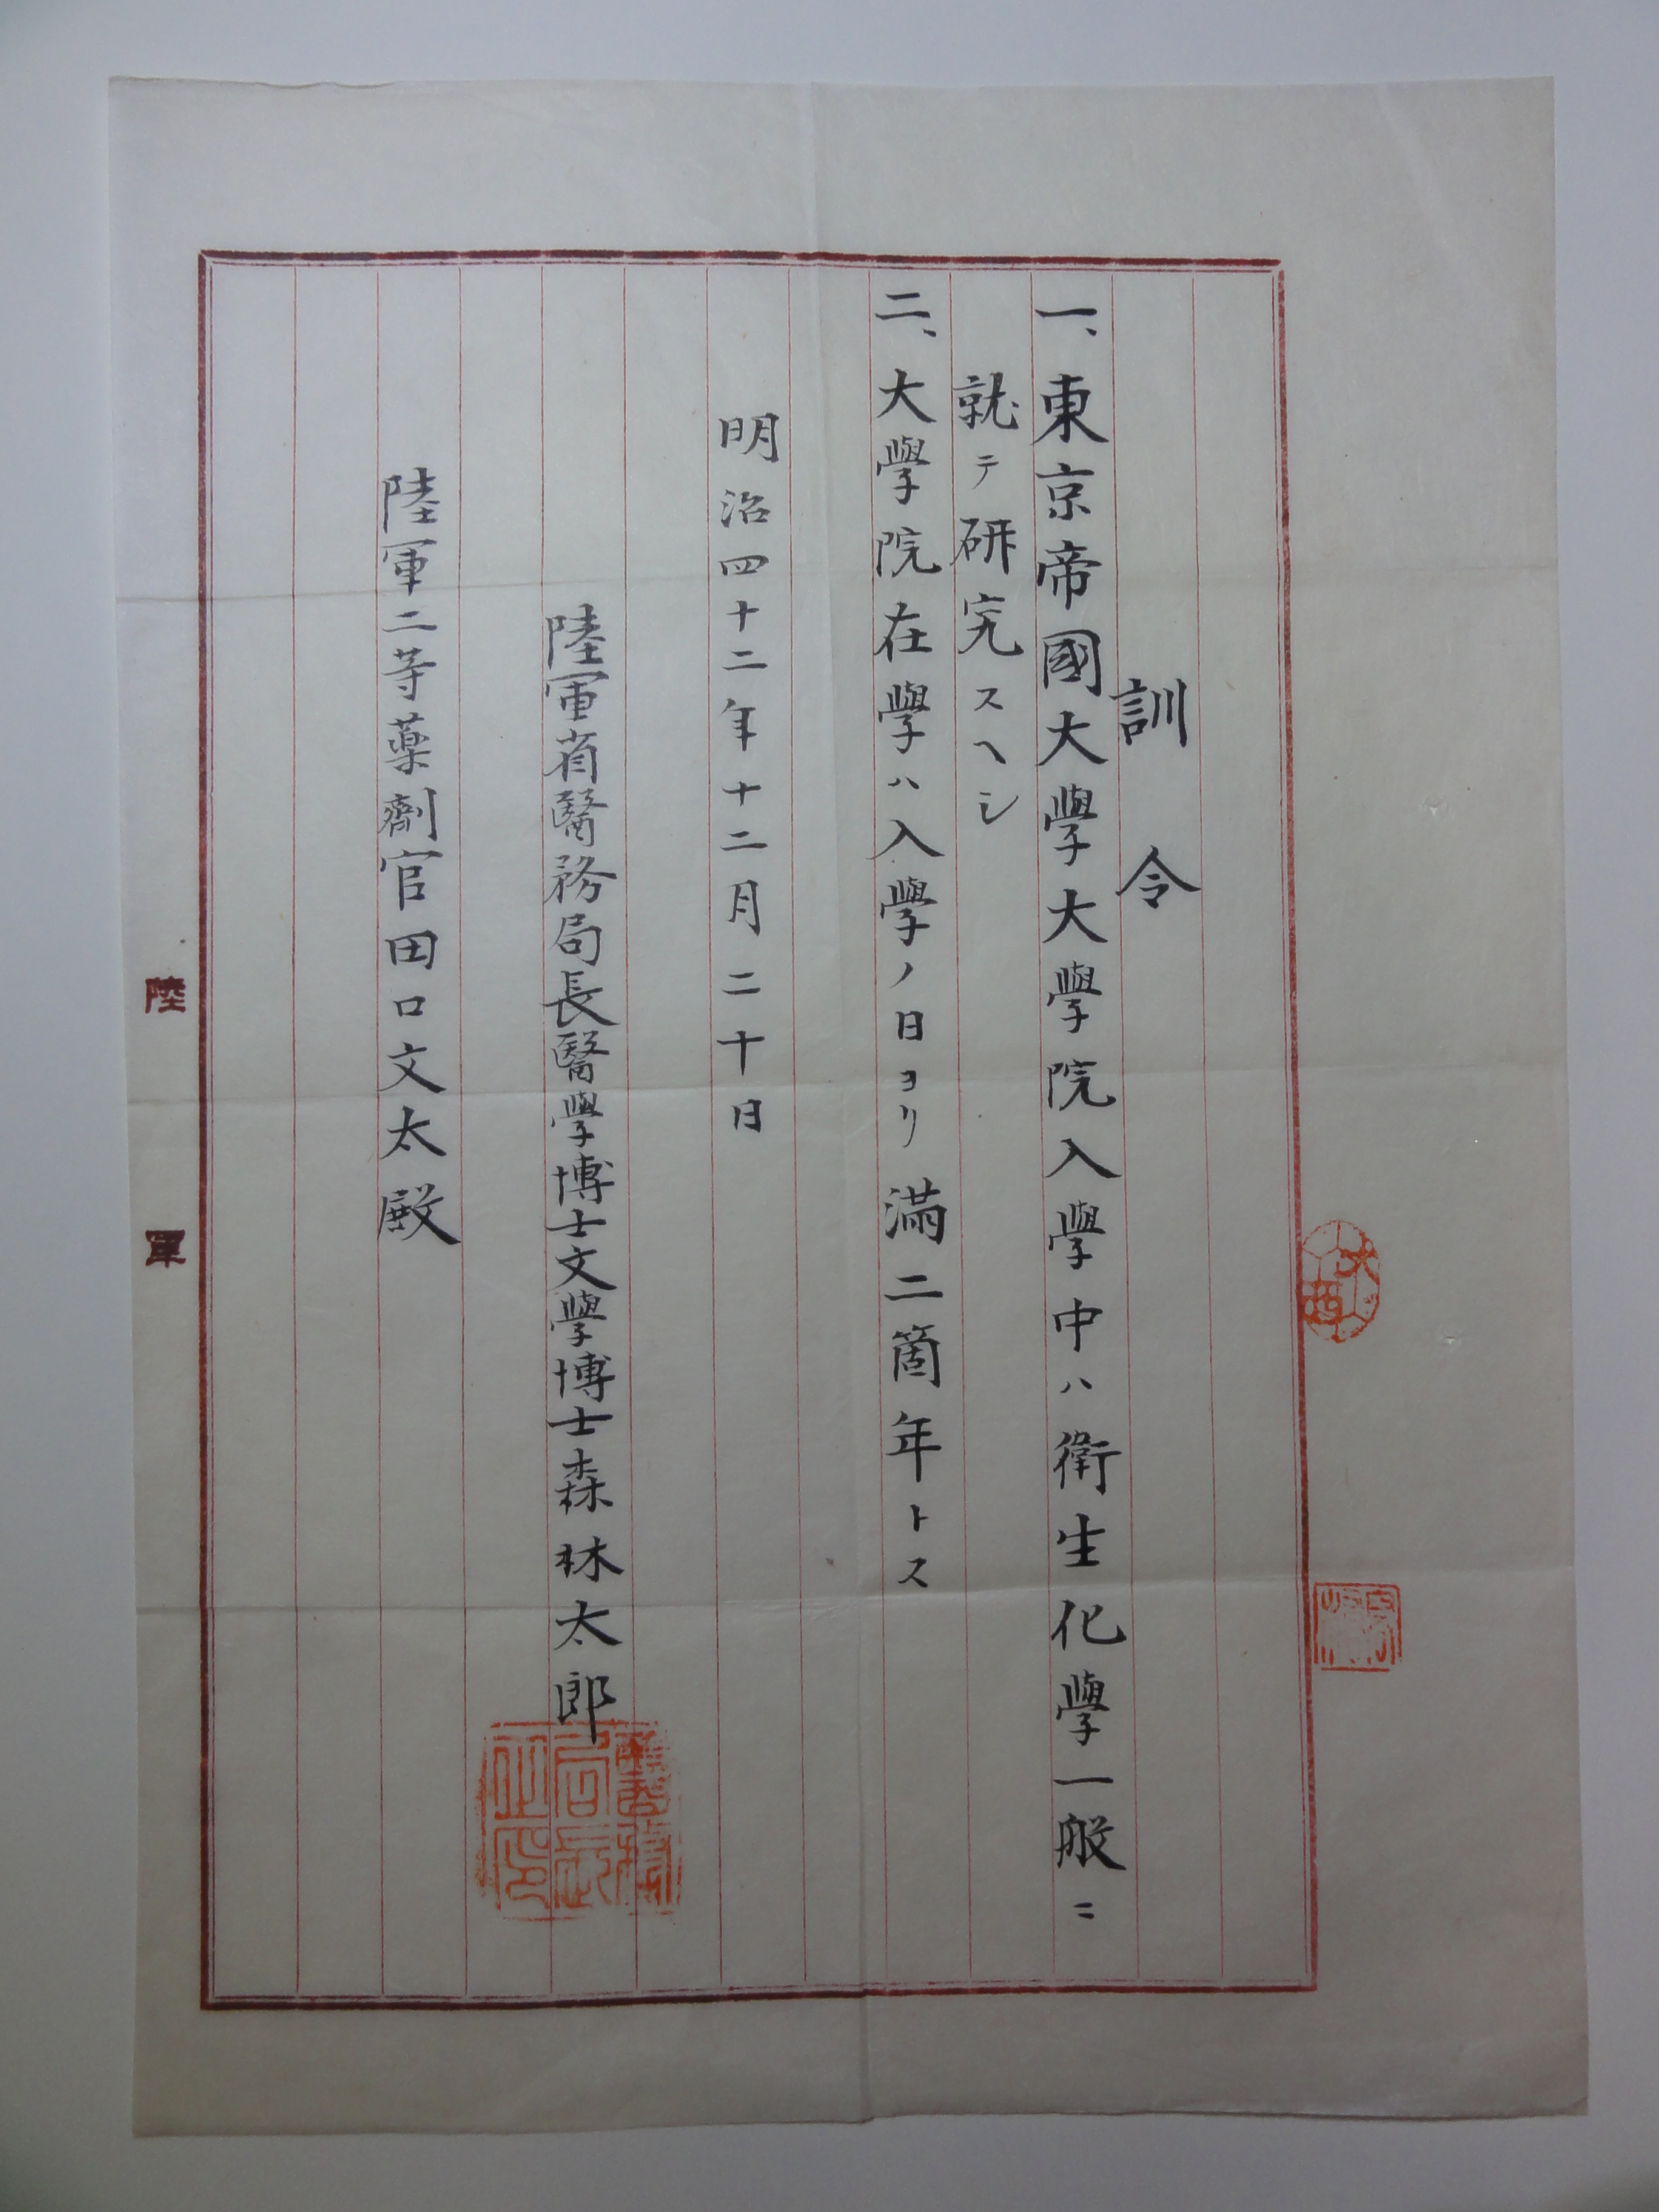 訓令
一、東京帝國大學大學院入學中ハ衛生化學一般ニ
就テ研究スヘシ
二、大學院在學ハ入學ノ日ヨリ滿二箇年トス
明治四十二年十二月二十日
陸軍省醫務局長醫學博士文學博士森林太郎
醫務局長之印
陸軍二等藥劑官田口文太殿
陸軍
大西